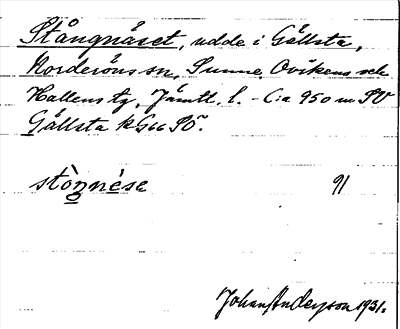 Stångnäset, udde i Gällsta,
Norderöns sn, Sunne, Ovikens och
Hallens tg, Jämtl. l. - C:a 950 m SV
Gällsta kG66 SO.
stòn̲né̲se 91
Johan Anderson 1931.